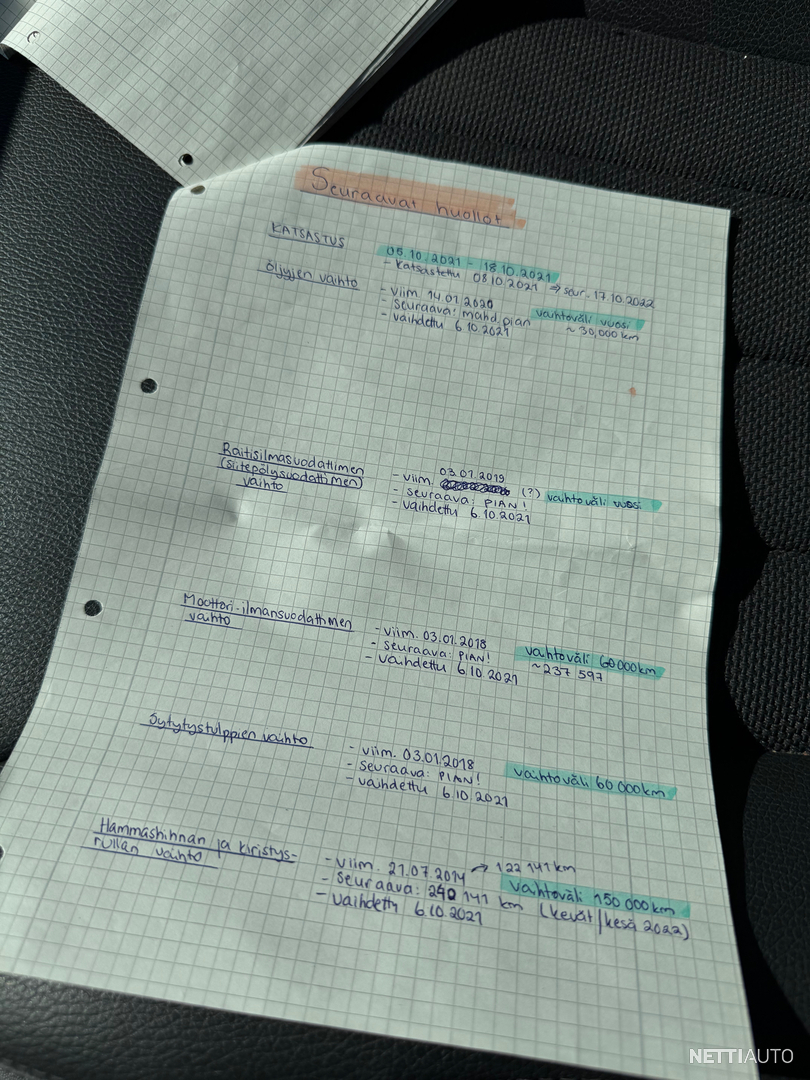 Seuraavat huollot
KATSASTUS
05.10.2021 - 18.10.2021
- Katsastettu 08.10.2021 ⇒ seur. 17.10.2022
Öljyjen vaihto
- viim. 14.01.2020
- seuraava: mahd. pian vaihtoväli vuosi
- vaihdettu 6.10.2021 ~ 30,000 km
Raitisilmasuodattimen
(siitepölysuodattimen)
vaihto
03.07.2019
- viim. (?) vaihtoväli vuosi
- seuraava: PIAN!
- vaihdettu 6.10.2021
Moottori-ilmansuodattimen
vaihto
- viim. 03.01.2018
- seuraava: PIAN! vaihtoväli 60000km
- vaihdettu 6.10.2021 ~237 597
Sytytystulppien vaihto
- viim. 03.01.2018
- seuraava: PIAN! vaihtoväli 60 000km
- vaihdettu 6.10.2021
Hammashihnan ja kiristys-
rullan vaihto
- viim. 21.07.2014 → 122 141 km
- seuraava: 240 141 km vaihtoväli 150 000km
- vaihdettu 6.10.2021 (kevät/kesä 2022)
NETTIAUTO